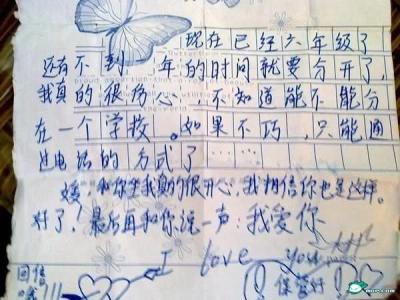 现在已经六年级了
还有不到一年的时间就要分开了,
我真的很伤心,不知道能不能分
在一个学校。如果不巧,只能通
过电话的方式了……
和你坐我真的很开心,我相信你也是这样。
对了!最后再和你说一声:我爱你
I love you
回信 保管好